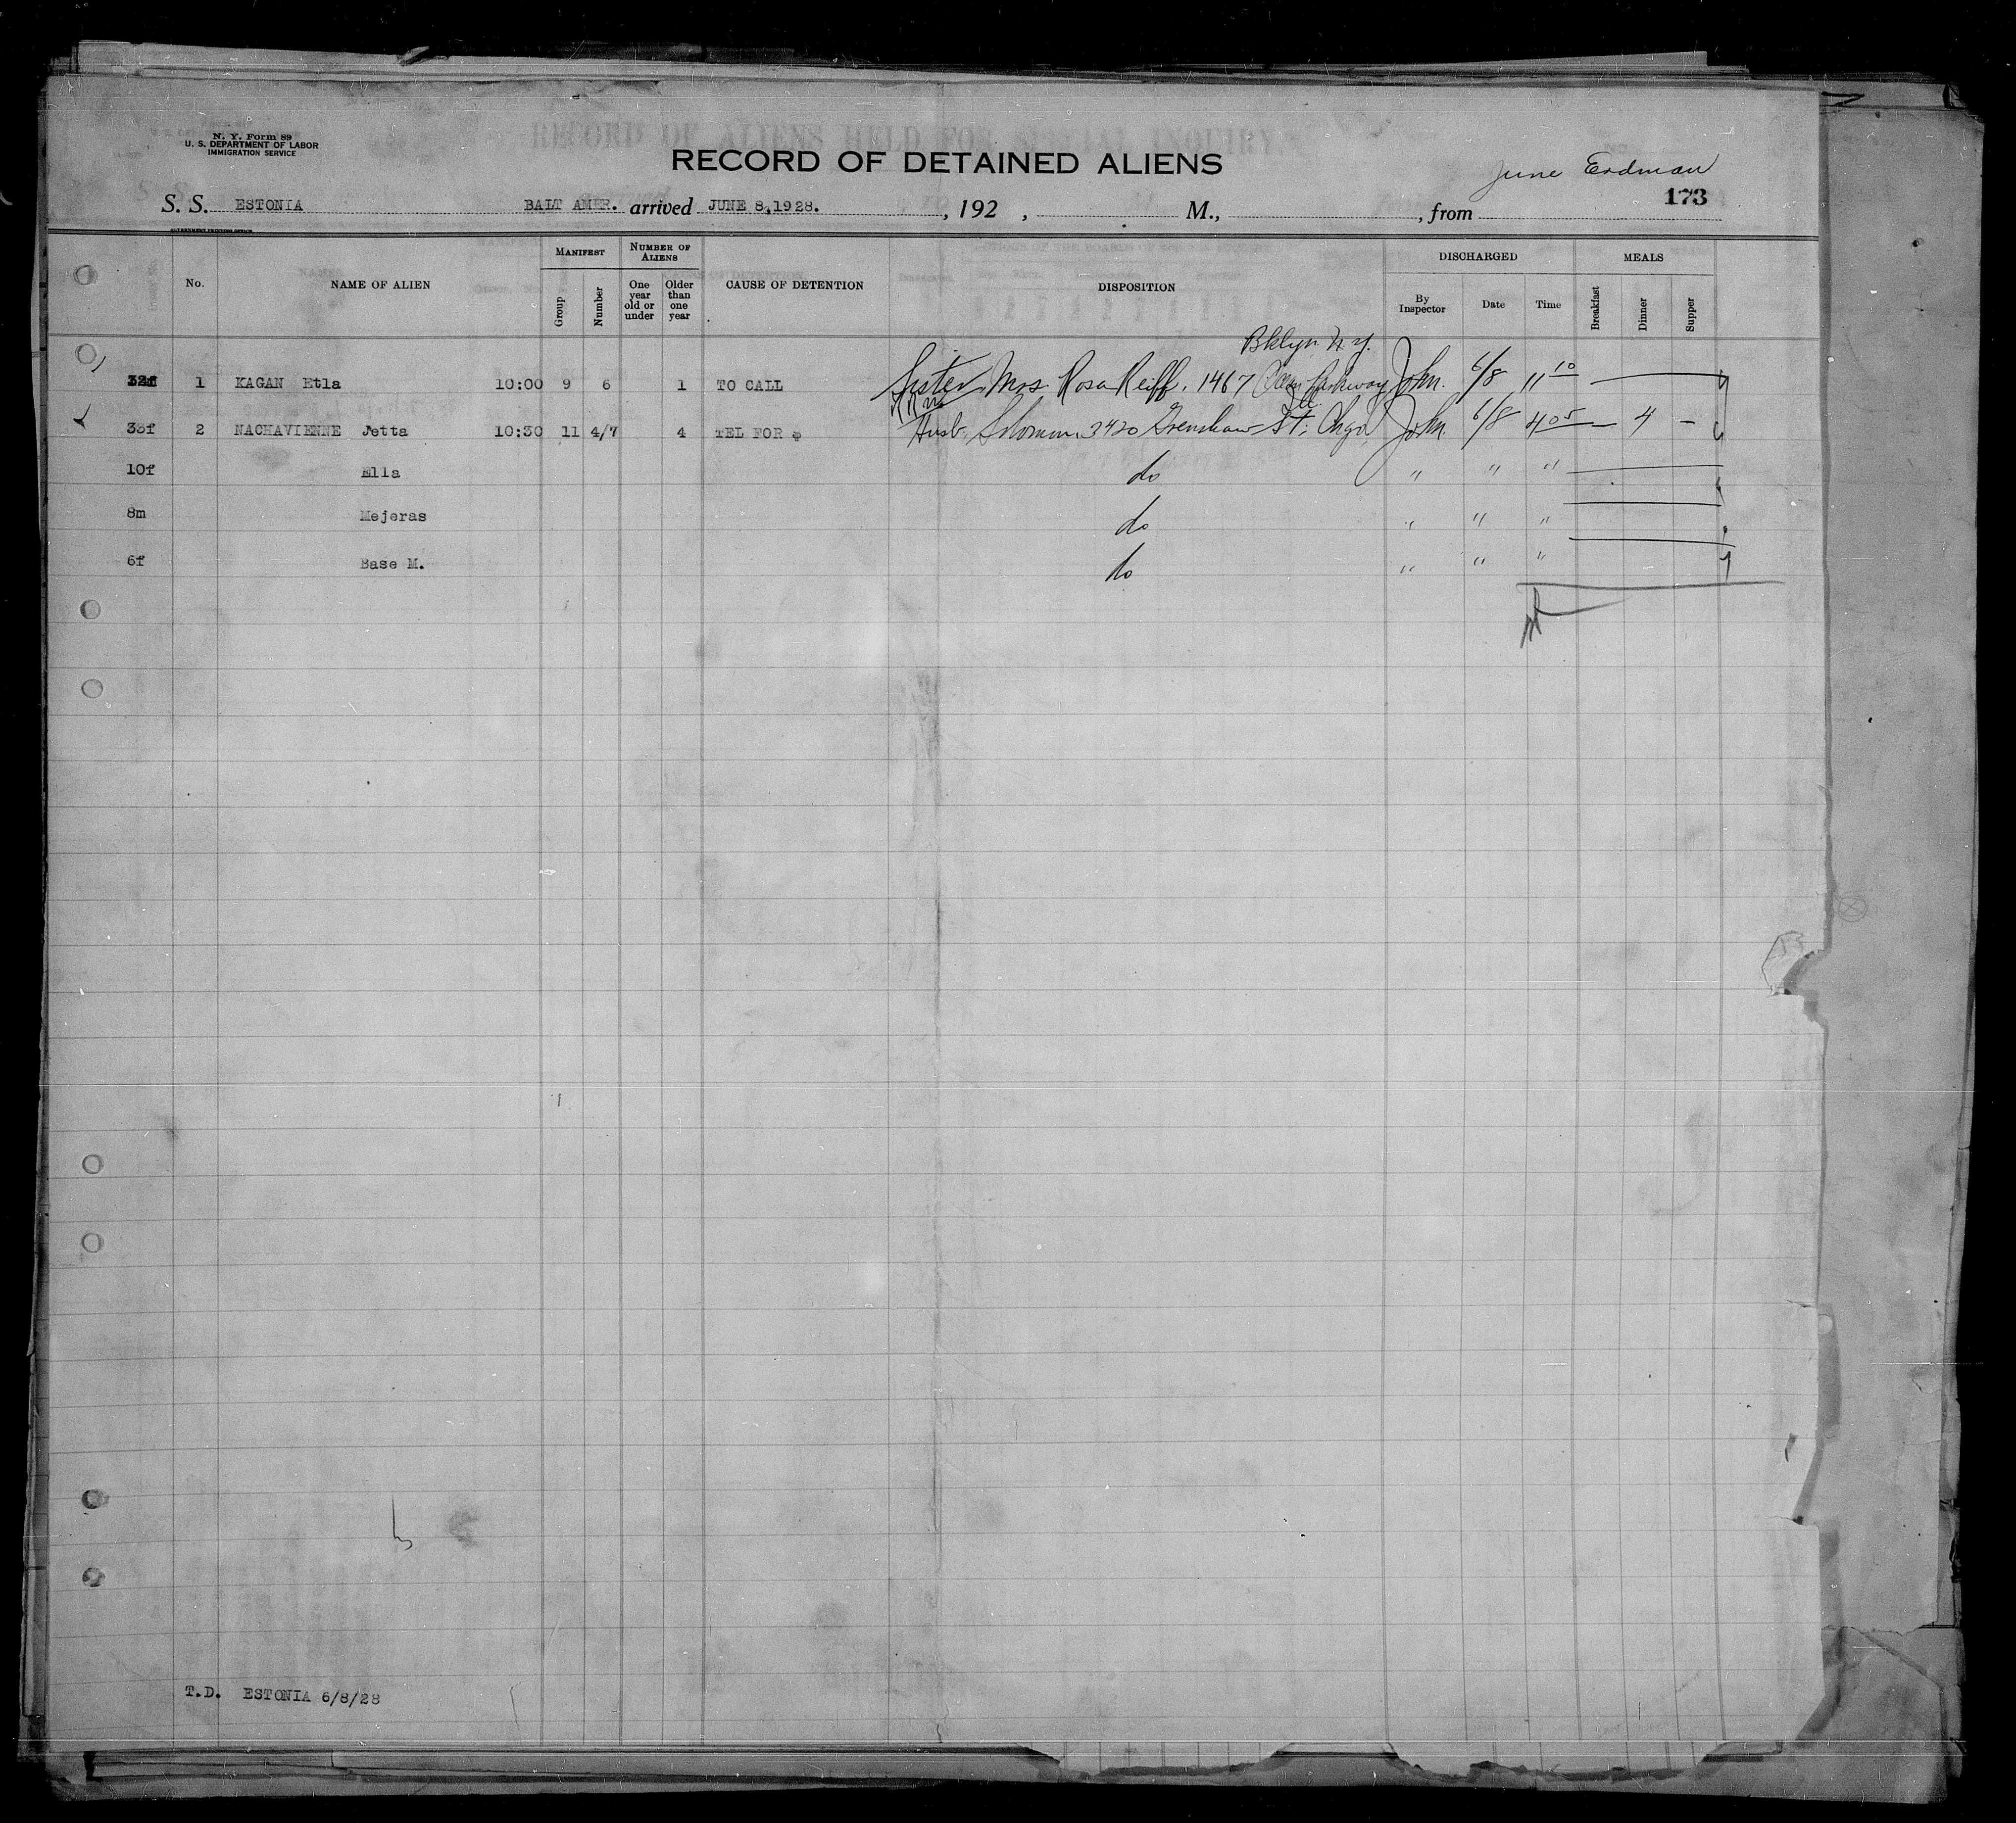 N. Y. Form 89
U. S. DEPARTMENT OF LABOR
IMMIGRATION SERVICE
RECORD OF ALIENS HELD FOR SPECIAL INQUIRY
RECORD OF DETAINED ALIENS
June Erdman
173
S. S. ESTONIA BALT AMER. arrived JUNE 8,1928. , 192 , M., , from
GOVERNMENT PRINTING OFFICE
No. NAME OF ALIEN MANIFEST Group Number NUMBER OF ALIENS One year old or under Older than one year CAUSE OF DETENTION DISPOSITION DISCHARGED By Inspector Date Time MEALS Breakfast Dinner Supper
Bklyn N.Y.
32f 1 KAGAN Etla 10:00 9 6 1 TO CALL Sister Mrs. Rosa Reiff, 1467 Parkway John. 6/8 11 10
Ill.
38f 2 NACHAVIENNE Jetta 10:30 11 4/7 4 TEL FOR $ Husb. Solomon 3420 Grenshaw St; Chgo John. 6/8 4 05 — 4 —
10f Ella do " " "
8m Mejeras do " " "
6f Base M. do " " "
T.D. ESTONIA 6/8/28